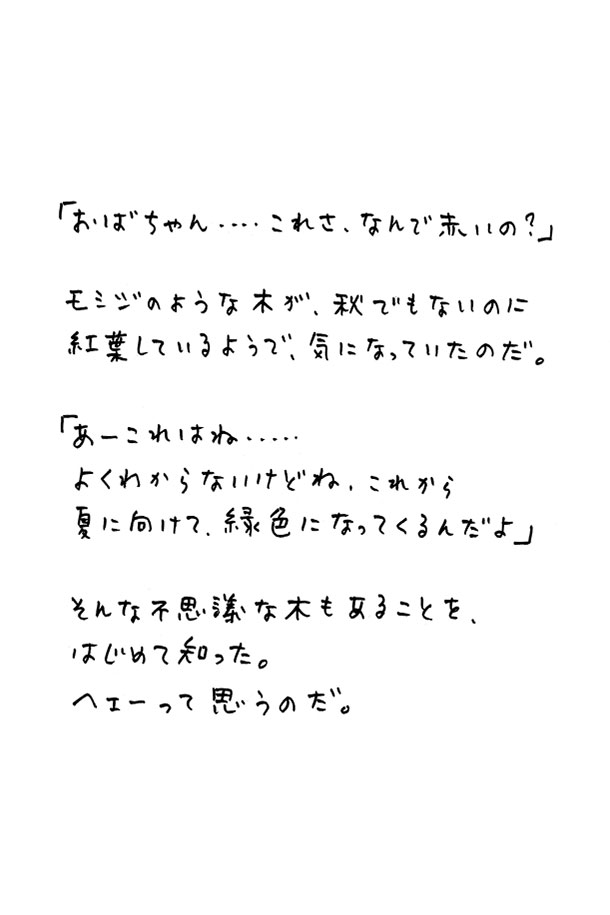 「おばちゃん‥‥これさ、なんで赤いの？」
モミジのような木が、秋でもないのに
紅葉しているようで、気になっていたのだ。
「あーこれはね‥‥‥
よくわからないけどね、これから
夏に向けて、緑色になってくるんだよ」
そんな不思議な木もあることを、
はじめて知った。
ヘェーって思うのだ。